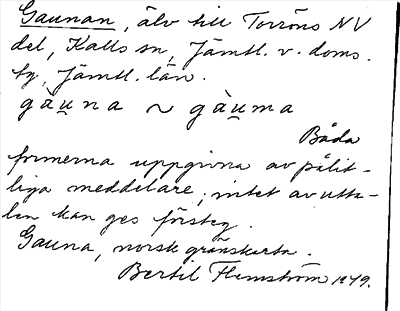 Gaunan, älv till Torröns NV
del, Kalls sn, Jämtl. v. doms.
tg, Jämtl. län.
gàu̯na ~ gàu̯ma
Båda
formerna uppgivna av pålit-
liga meddelare; intet av utta-
len kan ges försteg.
Gauna, norsk gränskarta.
Bertil Flemström 1949.